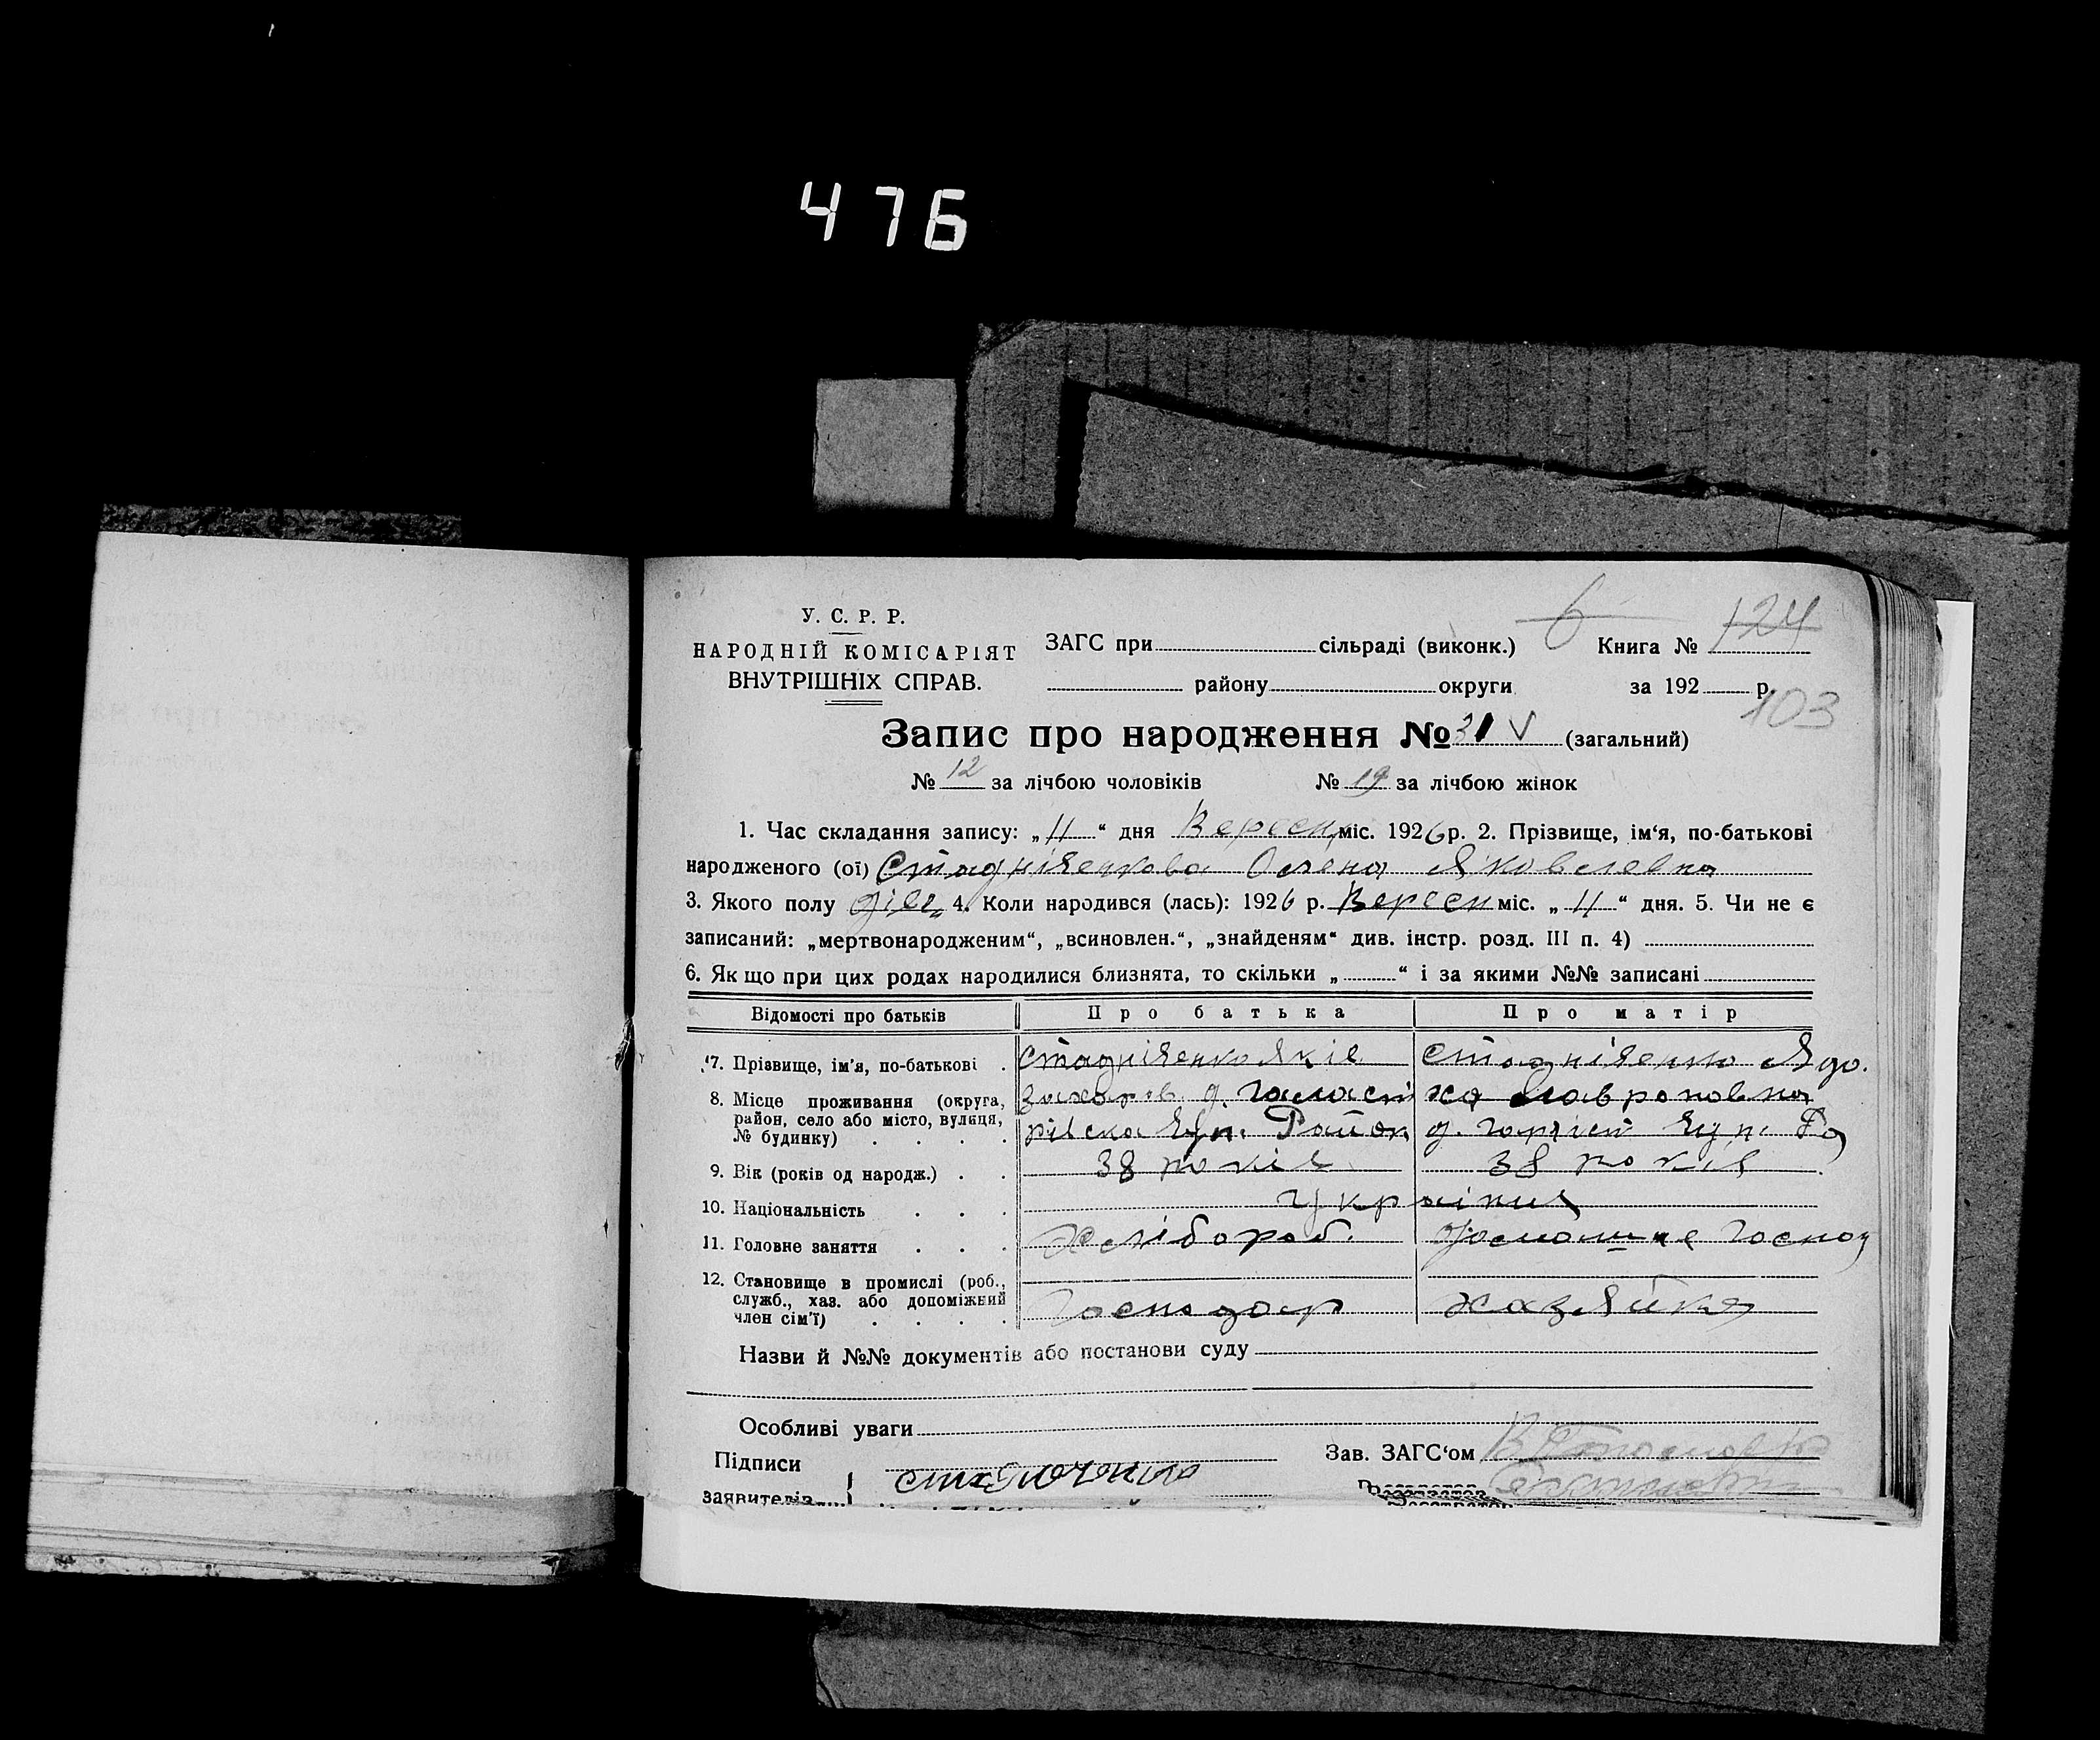 476
У. С. Р. Р.
НАРОДНІЙ КОМІСАРІЯТ
ВНУТРІШНІХ СПРАВ.
ЗАГС при сільраді (виконк.) 6 Книга № 124
району округи за 192 р.
103
Запис про народження № 31 V (загальний)
№ 12 за лічбою чоловіків № 19 за лічбою жінок
1. Час складання запису: „11“ дня Вересн міс. 1926 р. 2. Прізвище, ім‘я, по-батькові
народженого (ої) Стаднієнкова Олена Яковлевна
3. Якого полу дівч 4. Коли народився (лась): 1926 р. Вересн міс. „11“ дня. 5. Чи не є
записаний: „мертвонародженим“, „всиновлен.“, „знайденям“ див. інстр. розд. III п. 4)
6. Як що при цих родах народилися близнята, то скільки „ “ і за якими №№ записані
Відомості про батьків Про батька Про матір
7. Прізвище, ім‘я, по-батькові Стаднієнко Яків Стаднієнко Ядо.
8. Місце проживання (округа, район, село або місто, вулиця, № будинку)
Захаров. д. ха
рівска Район д.
9. Вік (років од народж.) 38 років 38 років
10. Національність Україниц
11. Головне заняття Хлібороб. Госпо
12. Становище в промислі (роб., служб., хаз. або допоміжний член сім‘ї) Господар хазяйка
Назви й №№ документів або постанови суду
Особливі уваги
Підписи Зав. ЗАГС‘ом
заявителів